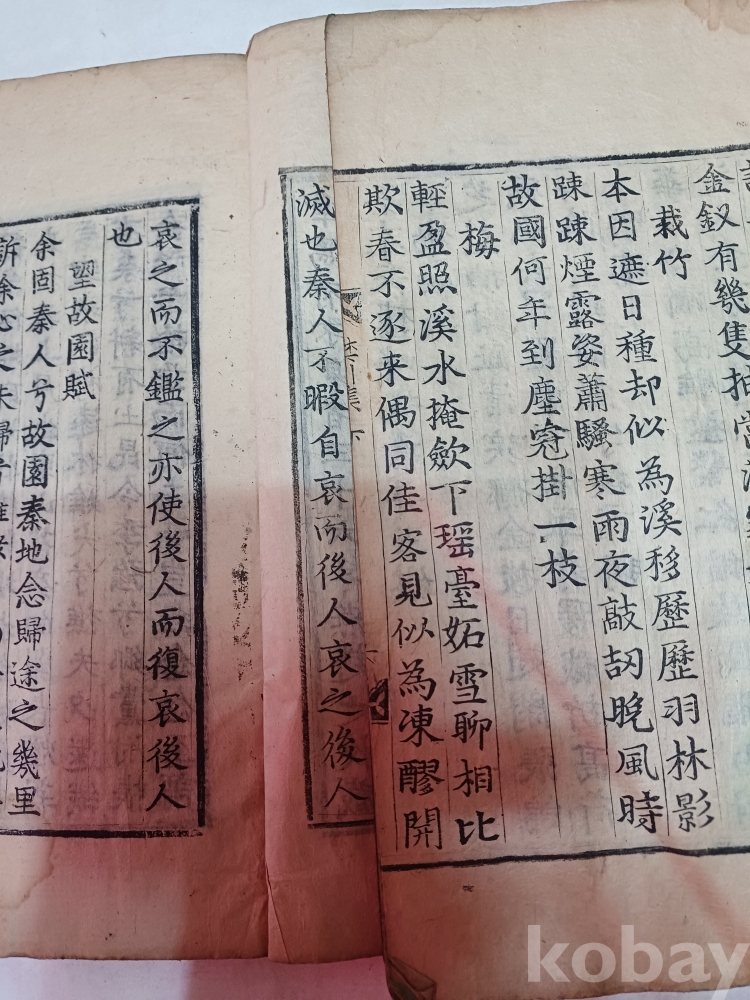 金釵有幾隻抽當酒家
栽竹
本因遮日種却似為溪移歷歷羽林影
踈踈煙露姿蕭騷寒雨夜敲刧晚風時
故國何年到塵冠掛一枝
梅
輕盈照溪水掩歛下瑶臺妬雪聊相比
欺春不逐来偶同佳客見似為凍醪開
川集下
滅也秦人不暇自哀而後人哀之後人
哀之而不鑑之亦使後人而復哀後人
也
望故園賦
余固秦人兮故園秦地念歸途之幾里
訴余心之未歸兮雖
kobay